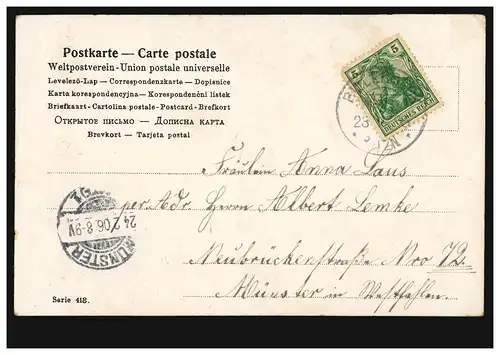 Postkarte — Carte postale
Weltpostverein - Union postale universelle
Levelező-Lap — Correspondenzkarte — Dopisnice
Karta korespondencyjna — Korespondenční lístek
Briefkaart - Cartolina postale - Postcard - Brefkort
Открытое письмо — Дописна карта
Brevkort — Tarjeta postal
5 5
DEUTSCHES REICH
23
Fräulein Anna Laus
per Adr. Herrn Albert Lemke
Neubrückenstraße Nro 72.
Münster in Westfahlen.
MÜNSTER
24.2.06.8-9V
Serie 418.